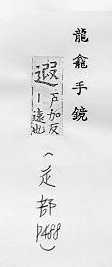 龍龕手鏡
遐戶加反丨遠也
(辵部P488)